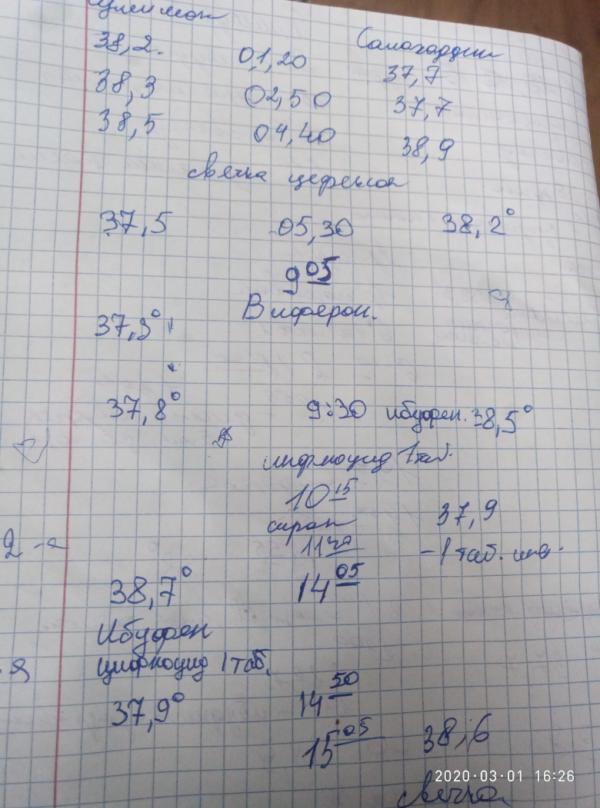 38,2. 01,20 37,7
38,3 02,50 37,7
38,5 04,40 38,9
свечка цефекон
37,5 05,30 38,2°
9 05
Виферон.
37,3°
37,8° 9:30 ибуфен. 38,5°
1 таб.
10 15 37,9
сироп
- 1 таб.
38,7° 14 05
Ибуфен
1 таб.
37,9° 14 50
15 05 38,6
свечка
2020-03-01 16:26